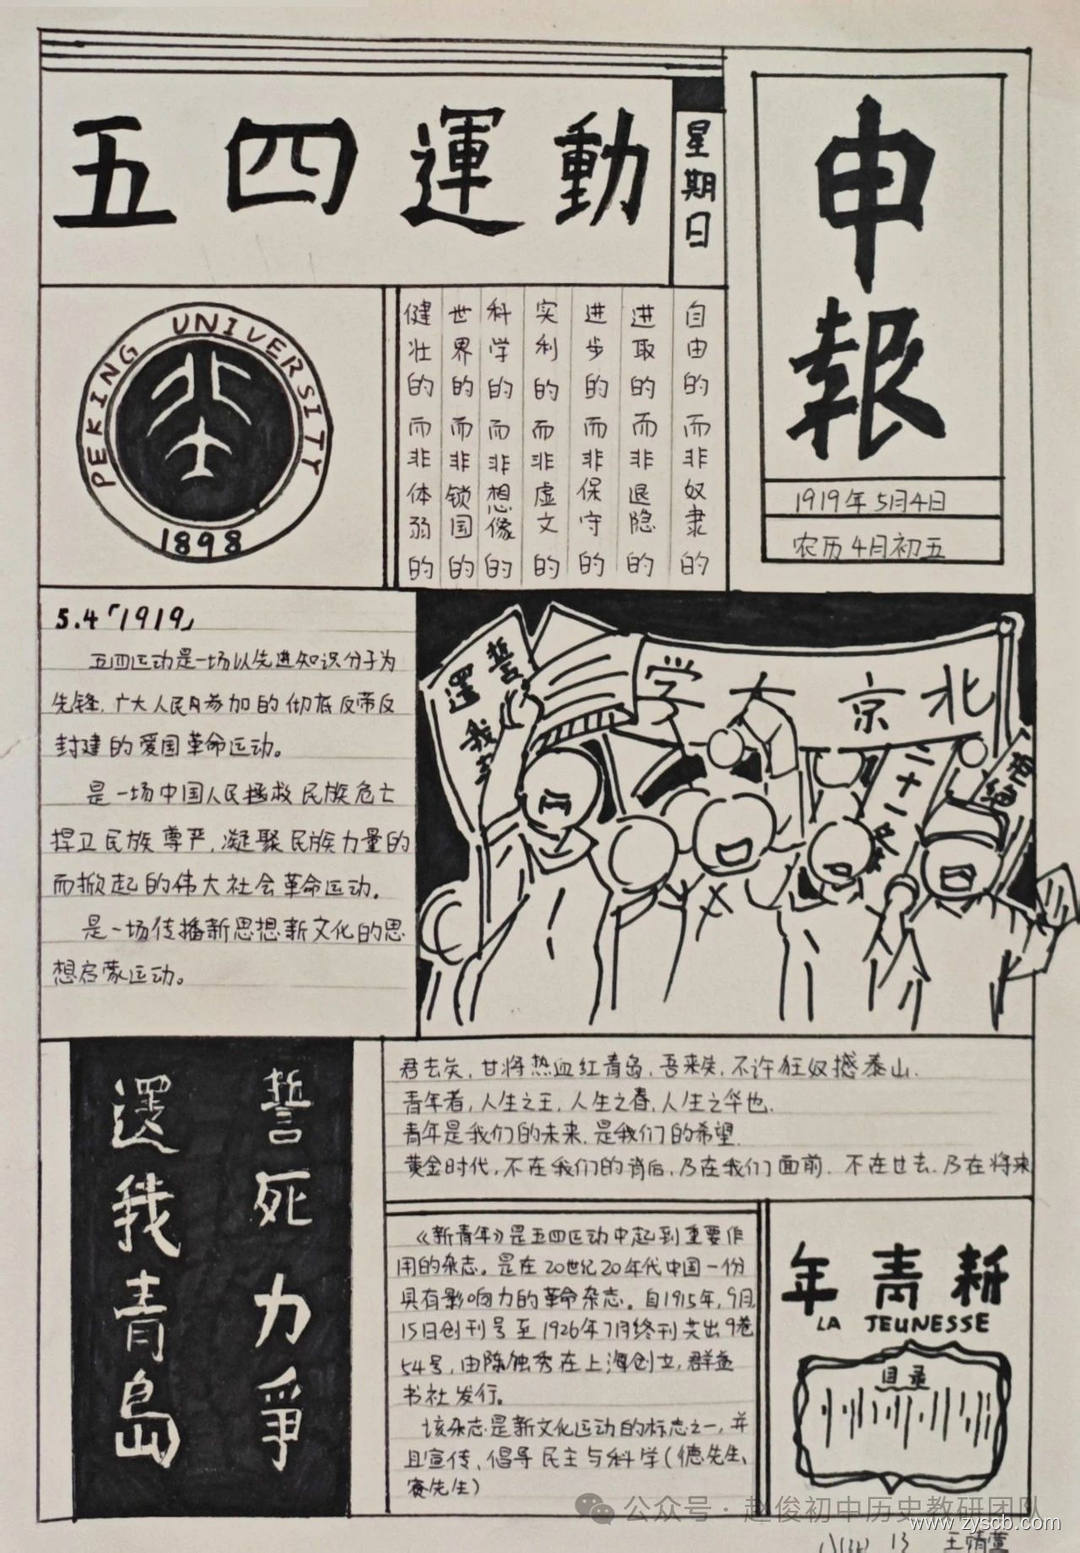 五四運動
星期日
申報
1919年5月4日
农历4月初五
PEKING UNIVERSITY
1898
自由的而非奴隶的
进取的而非退隐的
进步的而非保守的
实利的而非虚文的
科学的而非想像的
世界的而非锁国的
健壮的而非体弱的
5.4「1919」
五四运动是一场以先进知识分子为
先锋,广大人民月参加的彻底反帝反
封建的爱国革命运动。
是一场中国人民拯救民族危亡
捍卫民族尊严,凝聚民族力量的
而掀起的伟大社会革命运动,
是一场传播新思想新文化的思
想启蒙运动。
誓
還我
北京大学
二十一条
拒绝
誓死力爭
還我青島
君去矣,甘将热血红青岛,吾来矣,不许狂奴撼泰山.
青年者,人生之王,人生之春,人生之华也.
青年是我们的未来,是我们的希望.
黄金时代,不在我们的背后,乃在我们面前.不在过去.乃在将来
《新青年》是五四运动中起到重要作
用的杂志。是在20世纪20年代中国一份
具有影响力的革命杂志。自1915年,9月
15日创刊号至1926年7月终刊共出9卷
54号,由陈独秀在上海创立,群益
书社发行。
该杂志是新文化运动的标志之一,并
且宣传、倡导民主与科学(德先生、
赛先生)
新青年
LA JEUNESSE
目录
公众号·赵俊初中历史教研团队
www.zyscb.com
13